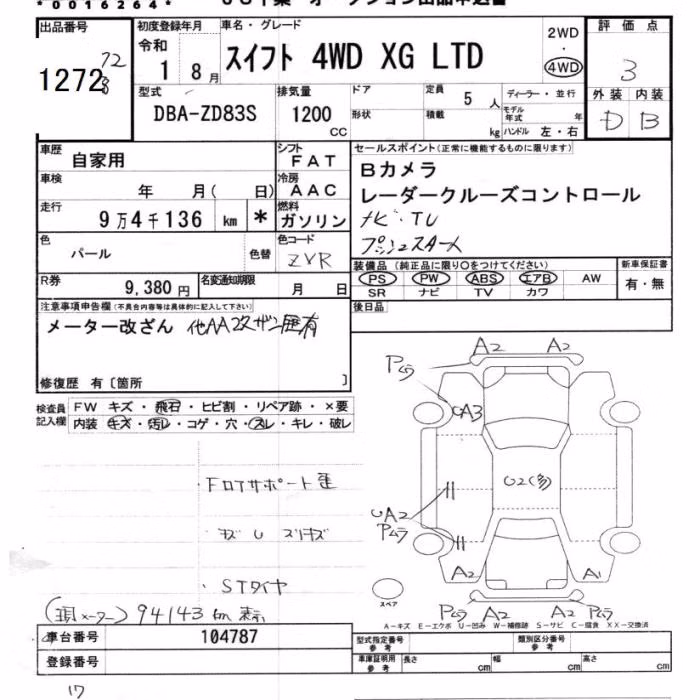 *0016264*
出品番号
1272
72
8
初度登録年月
令和
1 8月
車名・グレード
スイフト 4WD XG LTD
2WD
・
4WD
評価点
3
外装 内装
D B
型式
DBA-ZD83S
排気量
1200
CC
ドア
形状
定員
5 人
積載
kg
ディーラー・並行
モデル年式 年
ハンドル 左・右
車歴
自家用
車検
年 月( 日)
走行
9万4千136 km *
シフト
FAT
冷房
AAC
燃料
ガソリン
セールスポイント(正常に機能するものに限ります)
Bカメラ
レーダークルーズコントロール
ナビ・TV
プッシュスタート
色
パール
色替
色コード
ZVR
装備品(純正品に限り○をつけてください)
PS PW ABS エアB AW
SR ナビ TV カワ
新車保証書
有・無
R券
9,380円
名変通知期限
月 日
後日品
注意事項申告欄(不具合内容等は具体的に記入して下さい)
メーター改ざん 他AA改ザン歴有
修復歴 有〔箇所 〕
検査員記入欄
FW キズ・飛石・ヒビ割・リペア跡・×要
内装 キズ・汚レ・コゲ・穴・スレ・キレ・破レ
・STタイヤ
(現メーター) 94143km表示
A2 A2
Pムラ
A3
U2(多)
A2
Pムラ
A2 A1
Pムラ A2 A2 Pムラ
スペア
A-キズ E-エクボ U-凹み W-補修跡 S-サビ C-腐食 XX-交換済
車台番号
104787
登録番号
型式指定番号 参考
類別区分番号 参考
車庫証明用 参考
長さ cm
幅 cm
高さ cm
17